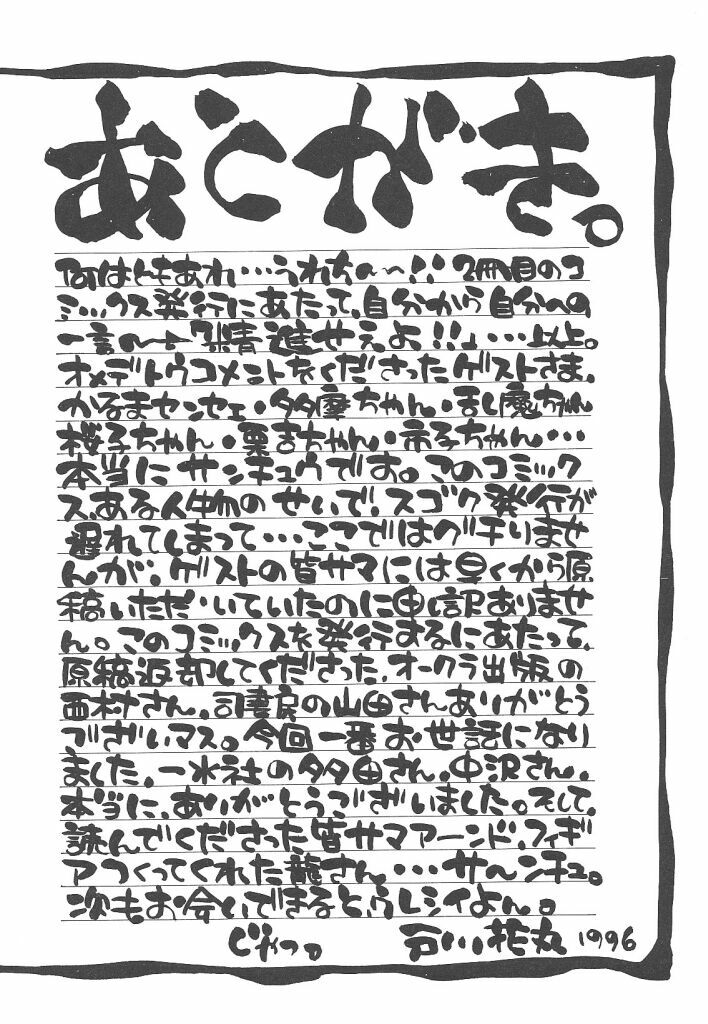 あとがき。
何はともあれ…うれちぃ〜!! 2冊目のコ
ミックス発行にあたって、自分から自分への
一言「精進せぇよ!!」…以上。
オメデトウコメントをくださったゲストさま。
かるまセンセェ・多摩ちゃん・乱魔ちゃん
桜子ちゃん・栗吉ちゃん・市子ちゃん…
本当にサンキュウです。このコミック
ス、ある人物のせいで、スゴク発行が
遅れてしまって…ここではグチりませ
んが、ゲストの皆サマには早くから原
稿いただいていたのに申し訳ありませ
ん。このコミックスを発行するにあたって、
原稿返却してくださった、オークラ出版の
西村さん。司書房の山田さんありがとう
ございマス。今回一番お世話になり
ました、一水社の多田さん。中沢さん。
本当に、ありがとうございました。そして、
読んでくださった皆サマアーンド、フィギ
アつくってくれた龍さん…サーンキュ。
次もお会いできるとうレシイよん。
じゃっ。 石川花丸 1996